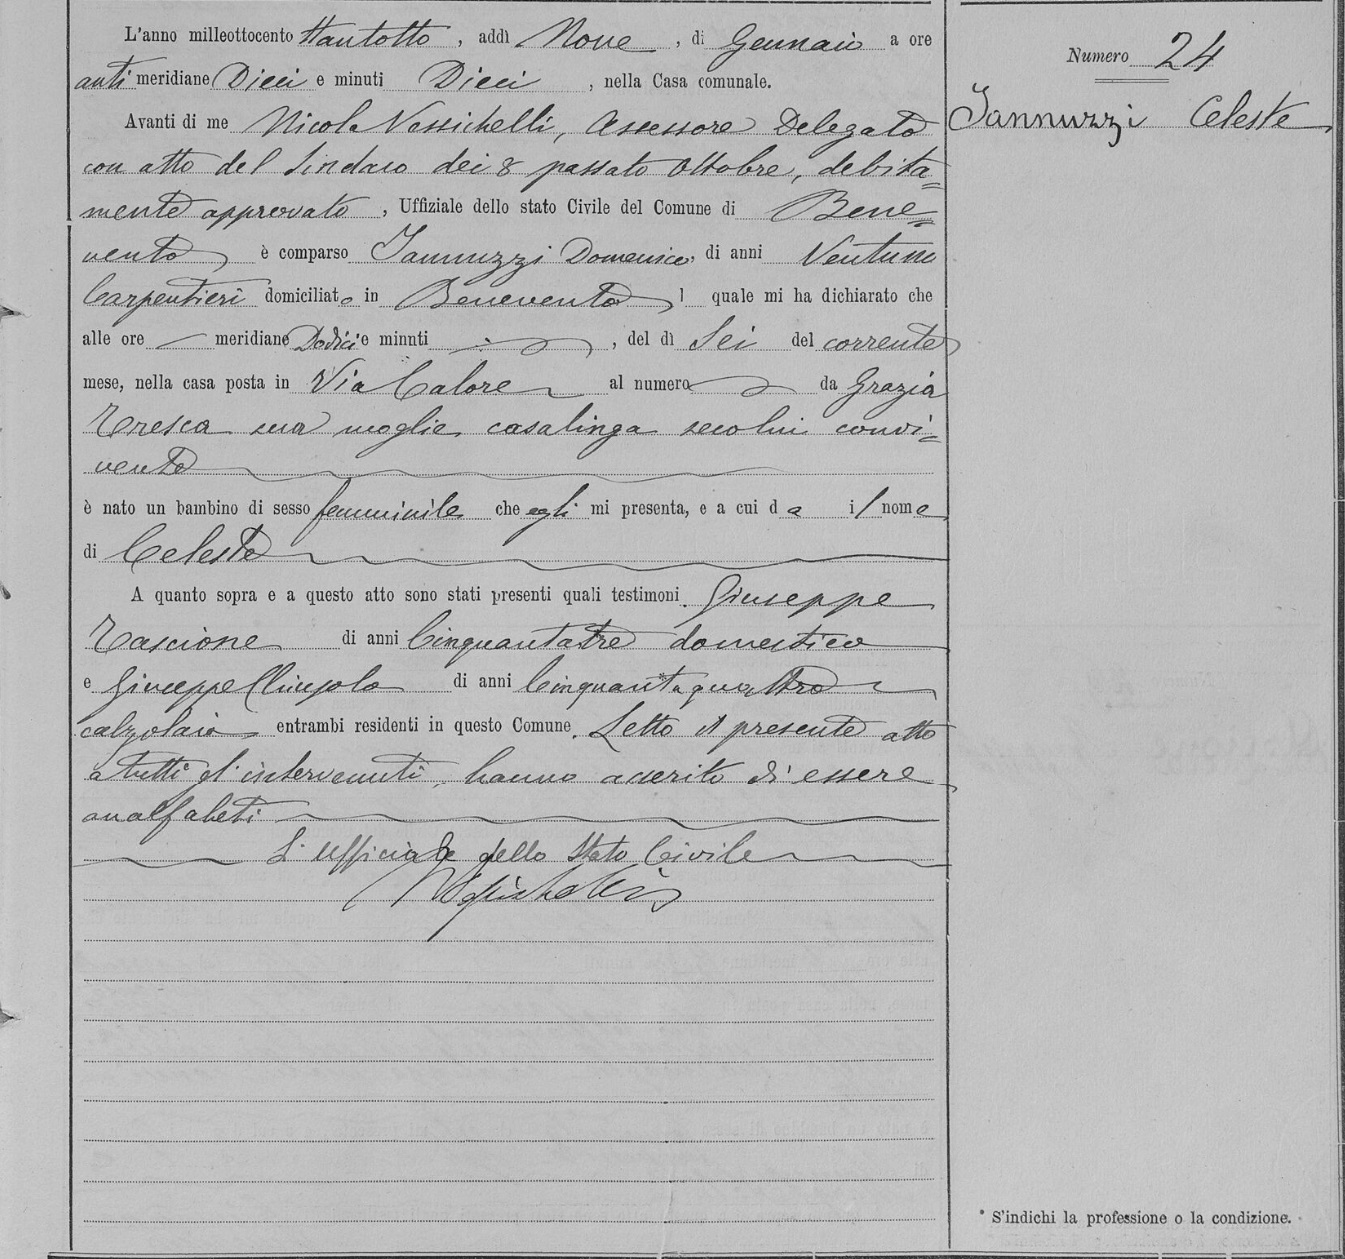 L'anno milleottocento ttantotto, addì Nove, di Gennaio a ore
anti meridiane Dieci e minuti Dieci, nella Casa comunale.
Avanti di me Nicola Vessichelli, Assessore Delegato
con atto del Sindaco dei 8 passato Ottobre, debita=
mente approvato, Uffiziale dello stato Civile del Comune di Bene=
vento, è comparso Iannuzzi Domenico, di anni Ventuno
Carpentieri domiciliato in Benevento, l quale mi ha dichiarato che
alle ore — meridiane Dodici e minuti, del dì Sei del corrente
mese, nella casa posta in Via Calore al numero da Grazia
Tresca sua moglie casalinga secolui convi=
vente
è nato un bambino di sesso femminile che egli mi presenta, e a cui da il nome
di Celeste
A quanto sopra e a questo atto sono stati presenti quali testimoni Giuseppe
Tascione di anni Cinquantatre domestico
e Giuseppe di anni Cinquantaquattro
calzolaio entrambi residenti in questo Comune. Letto il presente atto
a tutti gl'intervenuti, hanno asserito di essere
analfabeti
L'ufficiale dello Stato Civile
Numero 24
Iannuzzi Celeste
* S'indichi la professione o la condizione.